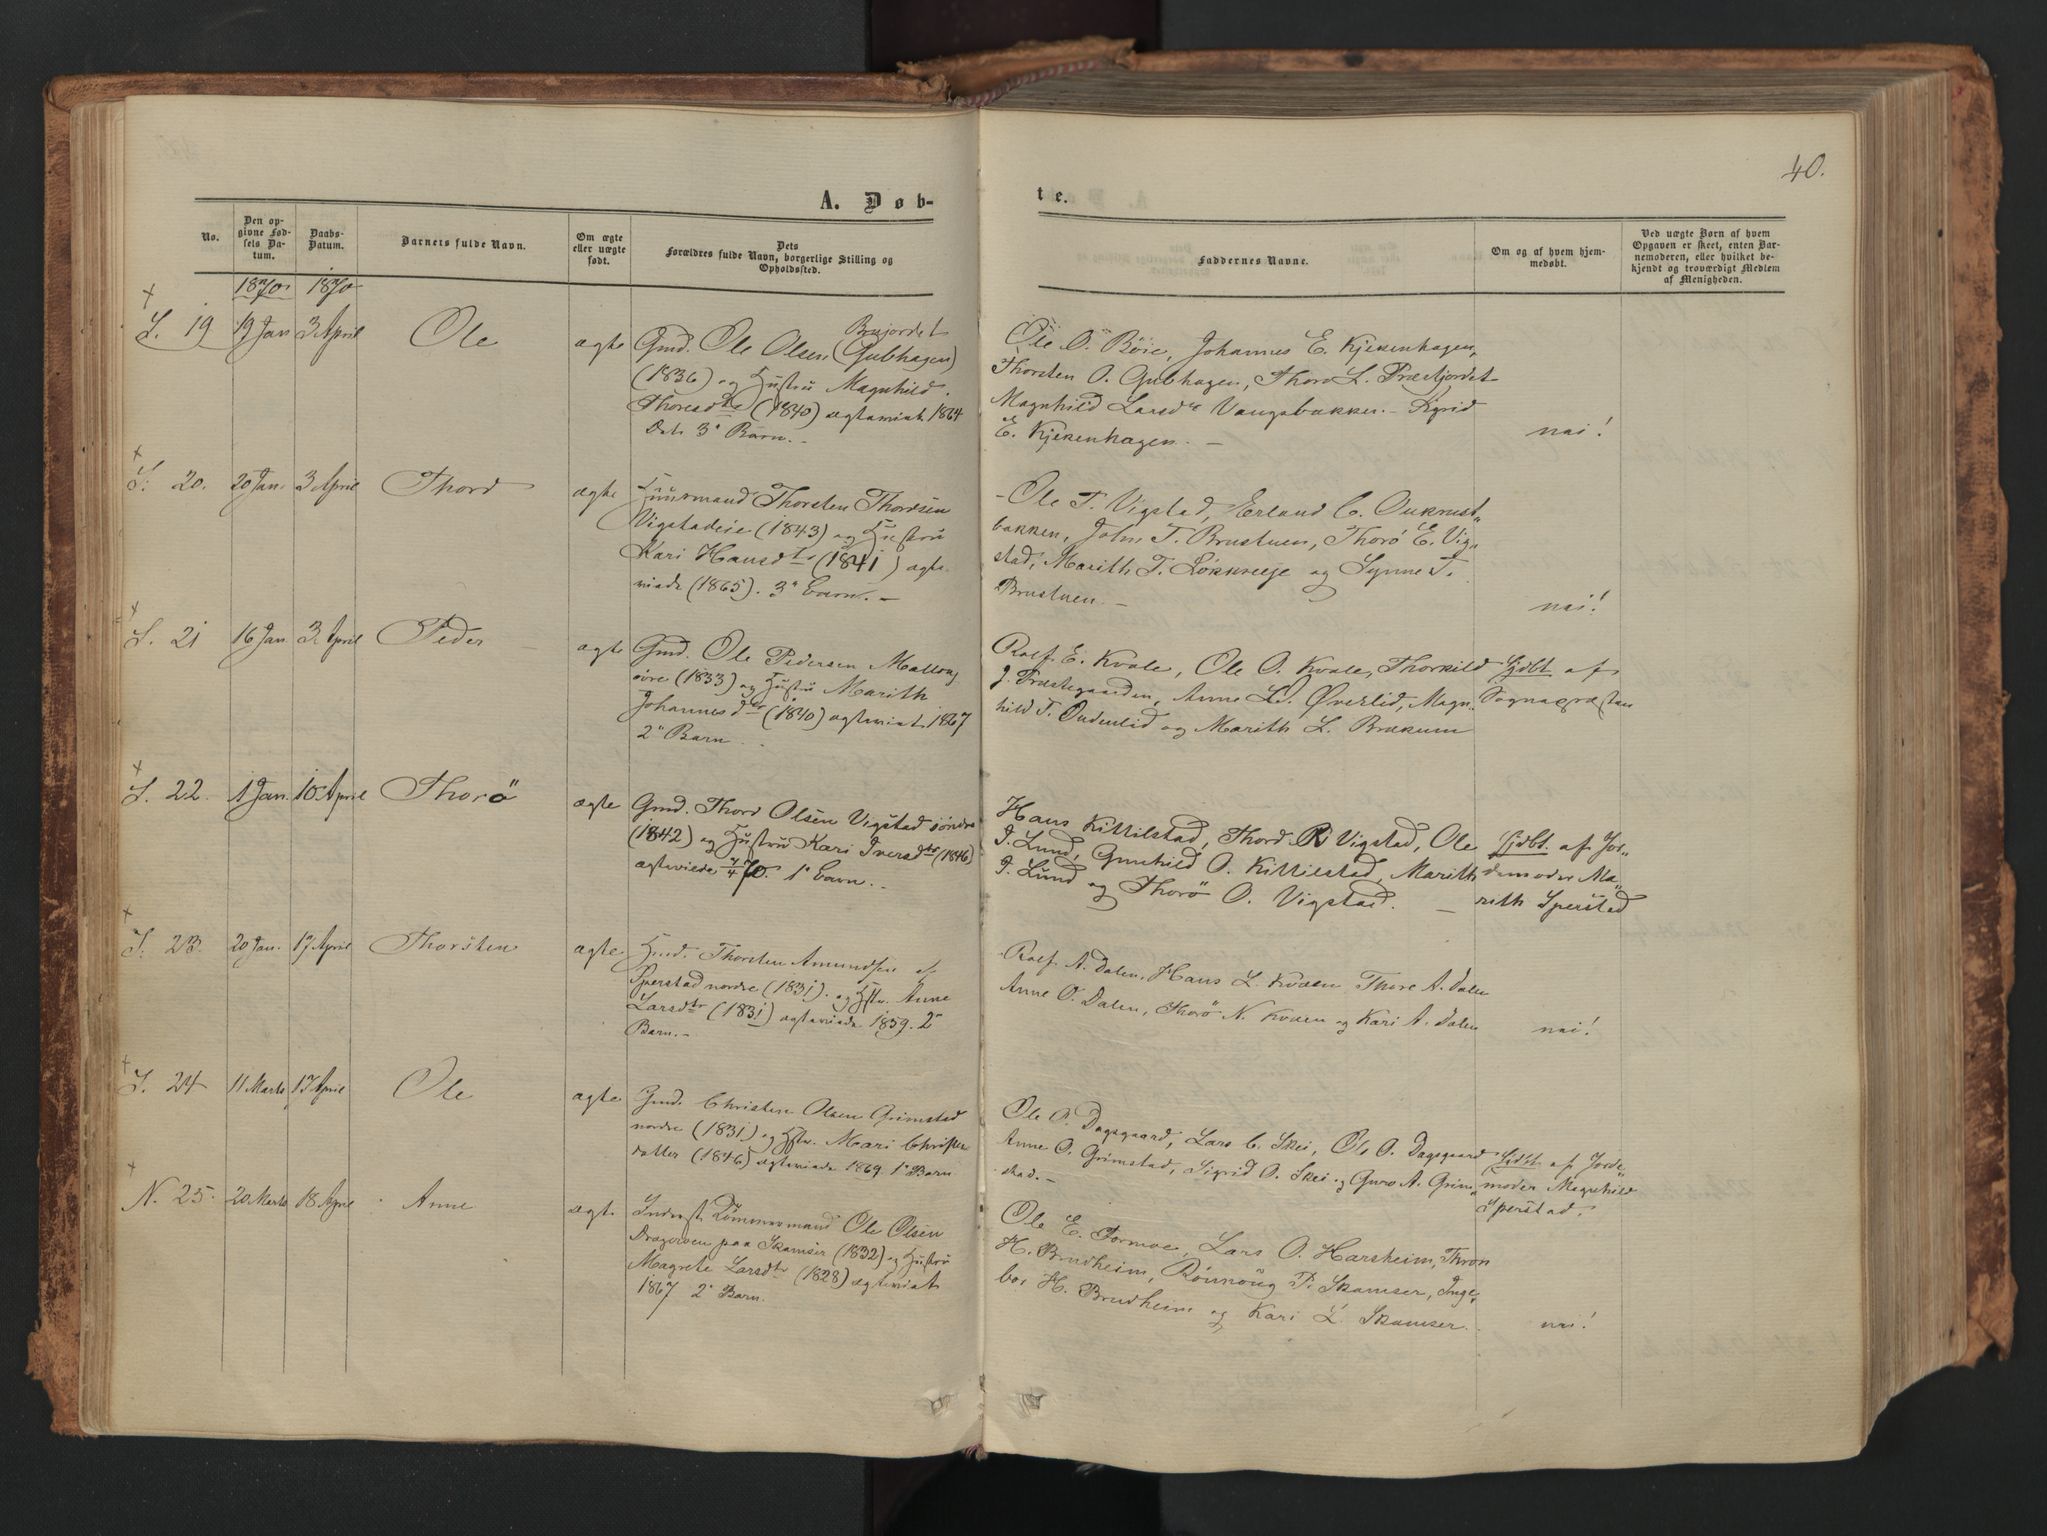 40.
A. Døb-
te.
No.
Den op-
givne Fød-
sels Da-
tum.
Daabs-
Datum.
Barnets fulde Navn.
Om ægte
eller uægte
født.
Dets
Forældres fulde Navn, borgerlige Stilling og
Opholdssted.
Faddernes Navne.
Om og af hvem hjem-
medøbt.
Ved uægte Børn af hvem
Opgaven er skeet, enten Bar-
nemoderen, eller hvilket be-
kjendt og troværdigt Medlem
af Menigheden.
1870 1870
S. 19 19 Jan 3 April Ole ægte
Gmd. Ole Olsen (Gubhagen)
(1836) og Hustru Magnhild
Thoresdtr (1840) ægteviet 1864
Dets 3' Barn. -
Ole O. Böie, Johannes E. Kjekenhagen,
Thorsten O. Gubhagen, Thore L. Præstjordet
Magnhild Larsdr Vangsbakken - Sigrid
E. Kjekenhagen. -
nei!
S. 20. 20 Jan. 3 April Thord ægte
Huusmand Thorsten Thordsen
Vigstadeie (1843) og Hustru
Kari Hansdtr (1841) ægte
viede (1865). 3' Barn. -
Ole T. Vigstad, Erland C. Oukrust-
bakken, John T. Brustuen, Thorø E. Vig-
stad, Marith T. Løkkreeje og Synne T.
Brustuen. -
nei!
S. 21 16 Jan 3. April Peder ægte
Gmd. Ole Pedersen Mallong
øvre (1833) og Hustru Marith
Johannesdtr (1840) ægteviet 1867
2' Barn
Rolf E. Kvale, Ole O. Kvale, Thorkild
J. Præstegaarden, Anne L. Øverlid, Magn-
hild T. Oudenlid og Marith L. Brækum
Hjdbt af
Sognepræsten
S. 22. 1 Jan. 10 April Thorö ægte
Gmd. Thord Olsen Vigstad söndre
(1842) og Hustru Kari Iversdtr (1846)
ægteviede 4/4 70. 1' Barn. -
Hans Kittilstad, Thord R Vigstad, Ole
I. Lund, Gunhild O. Kittilstad, Marith
I. Lund og Thorö O. Vigstad. -
Hjdbt. af Jor-
demoder Ma-
rith Sperstad
S. 23 20 Jan. 17 April Thorsten ægte
Gmd. Thorsten Amundsen af
Sperstad nordre (1831). og Hstr. Anne
Larsdtr (1831) ægteviede 1859. 2'
Barn. -
Rolf A. Dalen, Hans L. Kvæen Thore A. Dalen
Anne O. Dalen, Thorö N. Kvæen og Kari A. Dalen
nei!
S. 24 11 Marts 17 April Ole ægte
Gmd. Christen Olsen Grimstad
nordre (1831) og Hstr. Mari Christen
datter (1846) ægteviede 1869. 1' Barn
Ole O. Dagsgaard, Lars C. Skei, Ole O. Dagsgaard
Anne O. Grimstad, Sigrid O. Skei og Guro A. Grim-
stad. -
Hjdbt af Jorde-
moder Magnhild
Sperstad.
N. 25. 20 Marts 18 April Anne ægte
Inderst Tömmermand Ole Olsen
paa Skamsar (1832) og Hustru
Magrete Larsdtr (1828) ægteviet
1867 2' Barn.
Ole E. Formoe, Lars O. Harsheim, Thron
H. Brudheim, Rönnoug P. Skamsar, Inge-
bor H. Brudheim og Kari L. Skamsar.
nei!